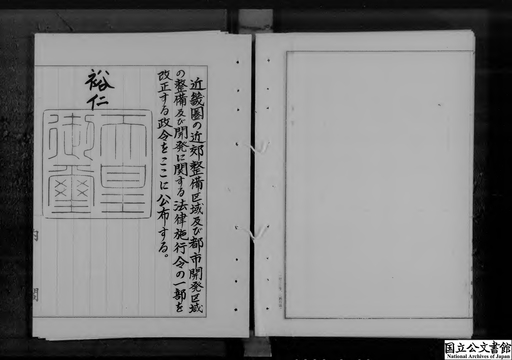 近畿圏の近郊整備区域及び都市開発区域
の整備及び開発に関する法律施行令の一部を
改正する政令をここに公布する。
裕仁
天皇
御璽
内閣
国立公文書館
National Archives of Japan